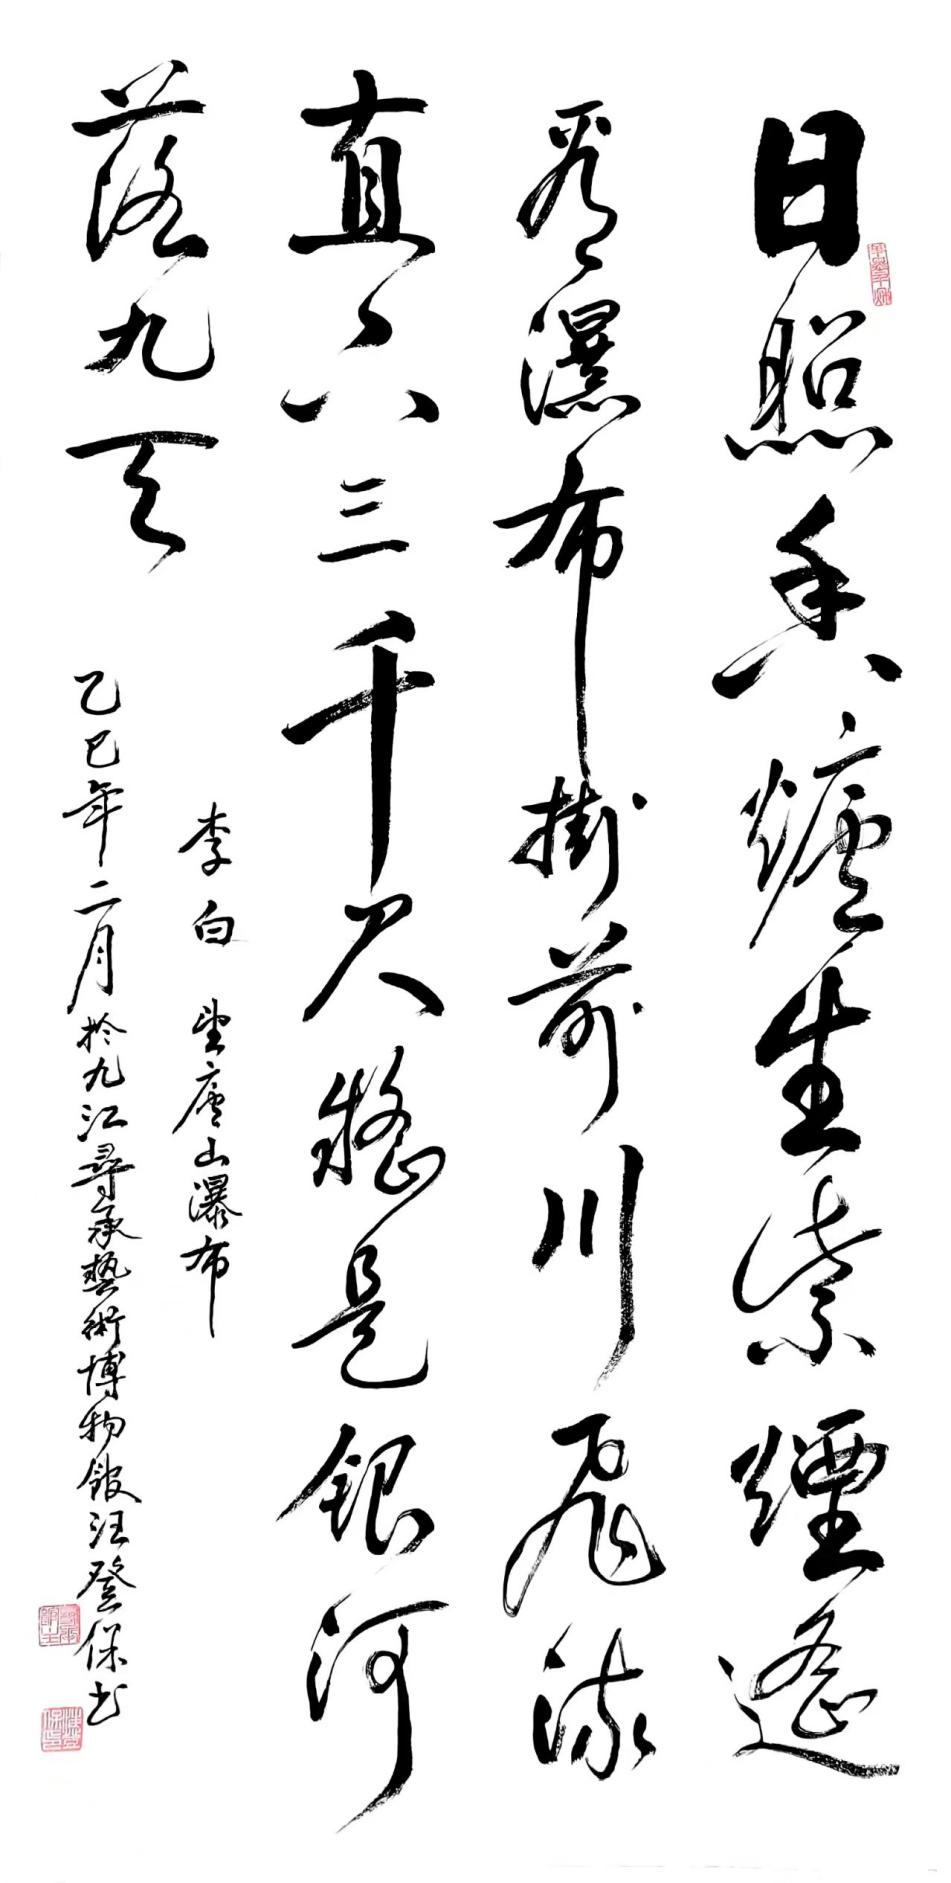 日照香爐生紫煙遙
看瀑布掛前川飛流
直下三千尺疑是銀河
落九天
李白 望廬山瀑布
乙巳年二月於九江尋承藝術博物館汪登保書